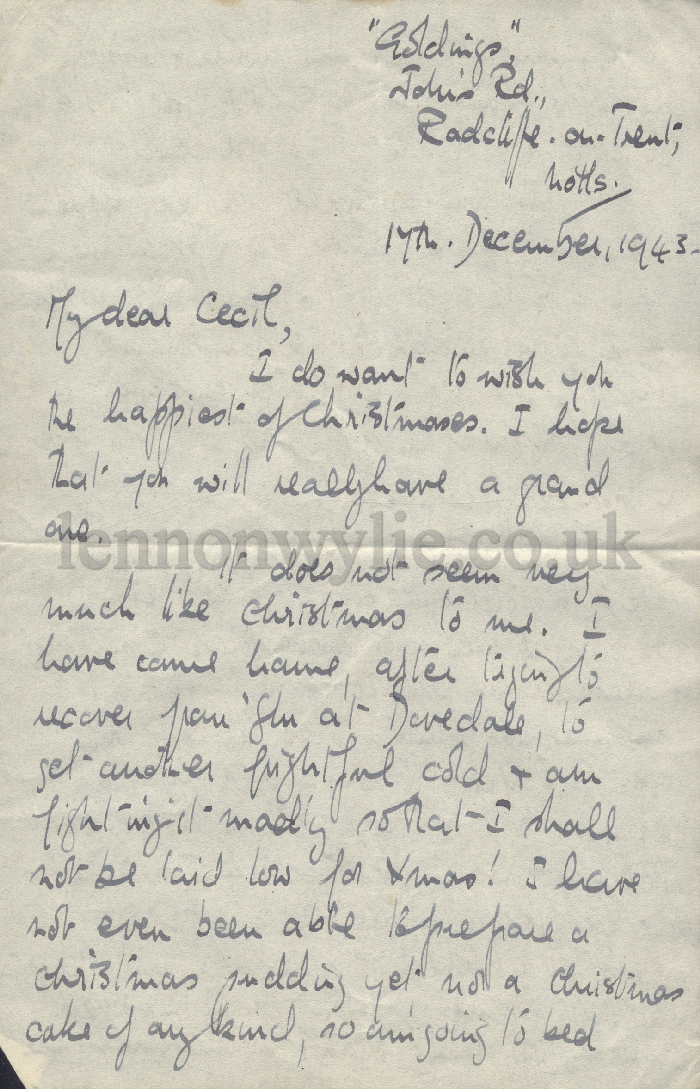 "Goldings,"
John's Rd.,
Radcliffe-on-Trent,
Notts.
17th. December, 1943-
My dear Cecil,
I do want to wish you
the happiest of Christmases. I hope
that you will really have a grand
one.
lennonwylie.co.uk
It does not seem very
much like Christmas to me. I
have come home, after trying to
recover from 'flu at Dovedale, to
get another frightful cold & am
fighting it madly so that I shall
not be laid low for Xmas! I have
not even been able to prepare a
Christmas pudding yet nor a Christmas
cake of any kind, so am going to bed